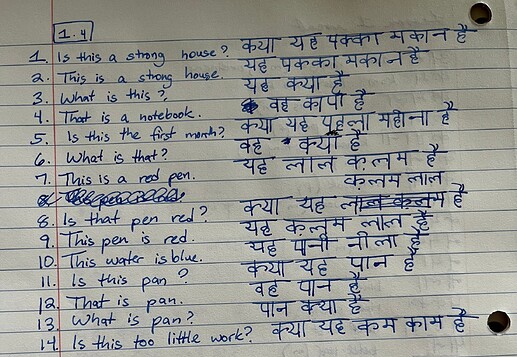 1.4
1. Is this a strong house? क्या यह पक्का मकान है
2. This is a strong house. यह पक्का मकान है
3. What is this? यह क्या है
4. That is a notebook. वह कापी है
5. Is this the first month? क्या यह पहला महीना है
6. What is that? वह क्या है
7. This is a red pen. यह लाल क़लम है
क़लम लाल
8. Is that pen red? क्या यह है
9. This pen is red. यह क़लम लाल है
10. This water is blue. यह पानी नीला है
11. Is this pan? क्या यह पान है
12. That is pan. वह पान है
13. What is pan? पान क्या है
14. Is this too little work? क्या यह कम काम है